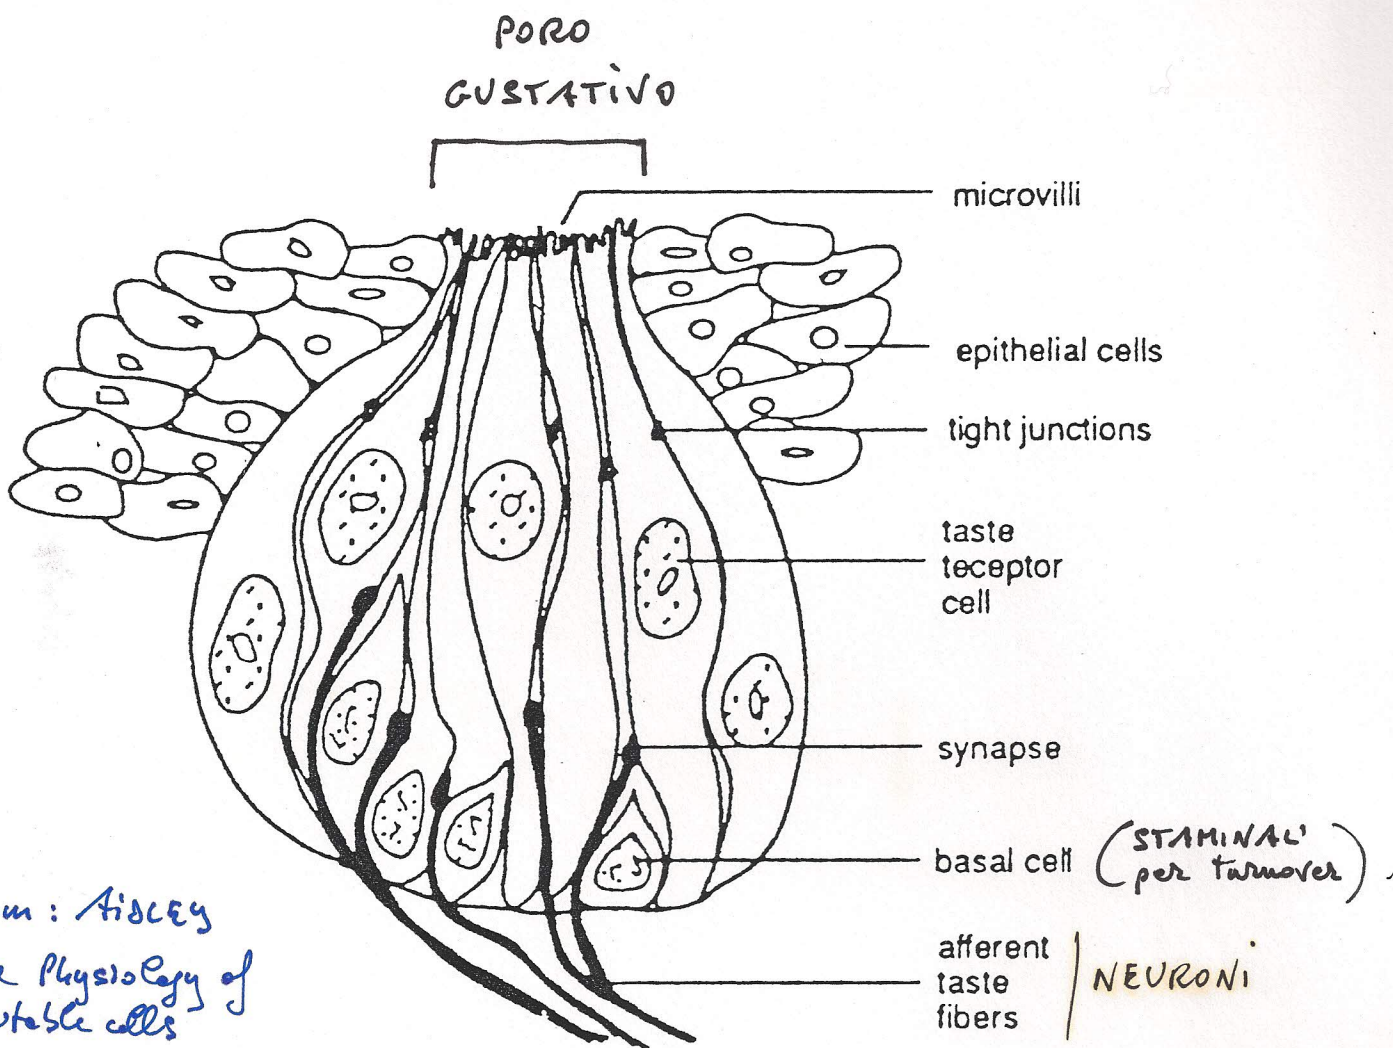 PORO
GUSTATIVO
microvilli
epithelial cells
tight junctions
taste
teceptor
cell
synapse
basal cell (STAMINALI
per turnover)
afferent
taste
fibers
NEURONI
m: AIDLEY
Physiology of
table cells